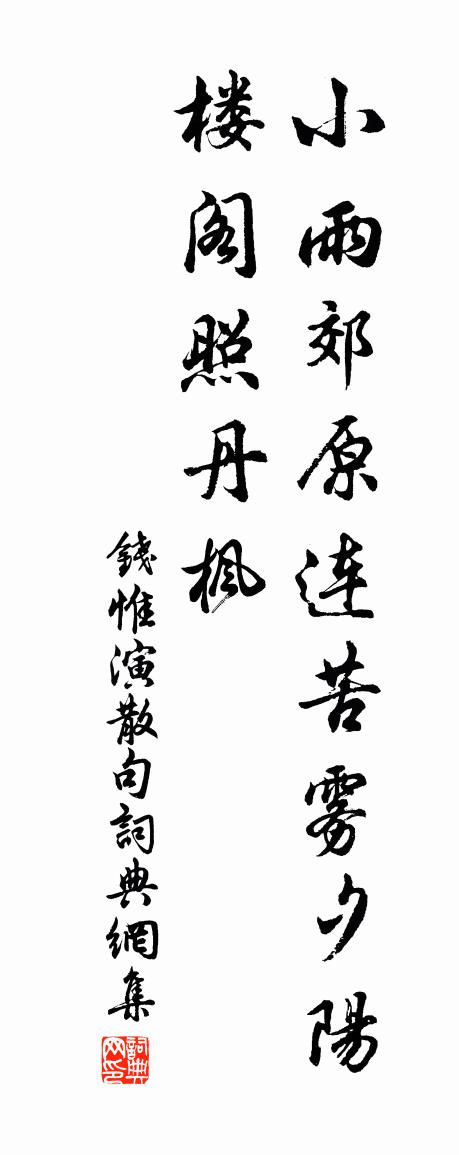 小雨郊原連苦雾夕陽
楼阁照丹楓
錢惟演散句詞典網集
詞典
网印